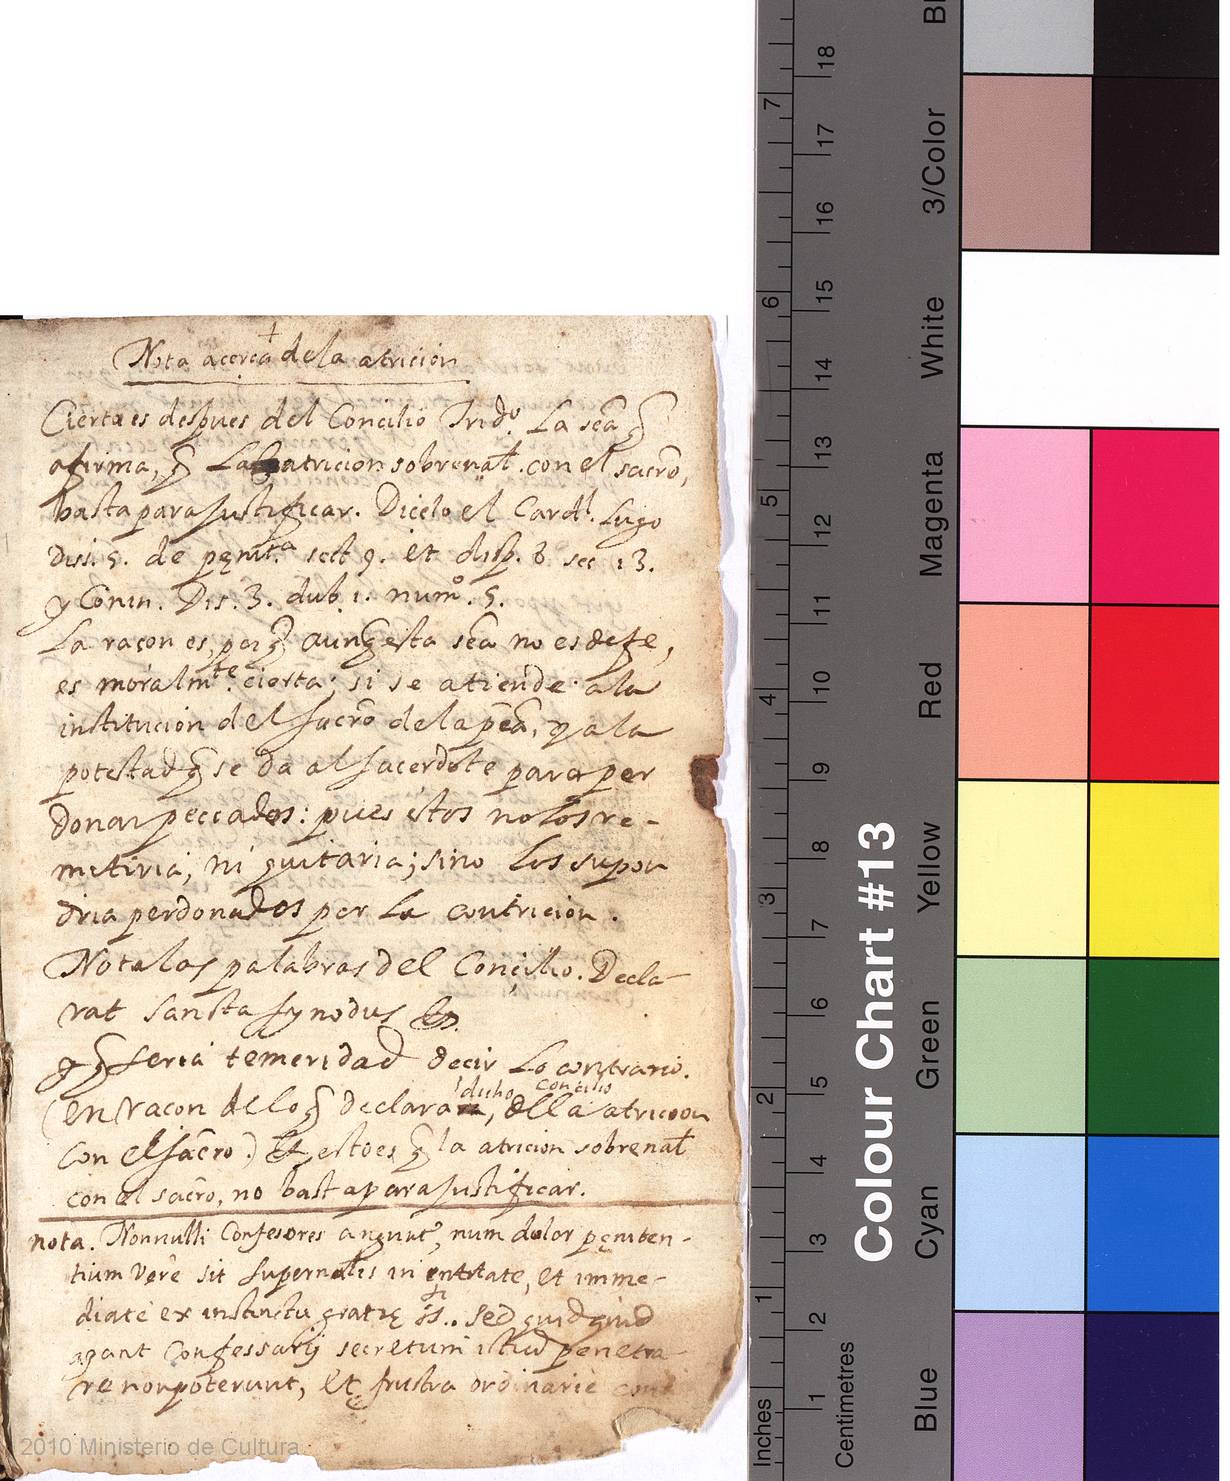 +
Nota acerca de la atricion
Cierta es despues del Concilio Trid.º La sēa q̃
afirma, q̃ La atricion sobrenat̃. con el sacrõ,
basta para justificar. Dicelo el Cardl. Lugo
Disi. 5. de penit.ª sect 9. et disp. 8 sec 13.
y Conin. Dis. 3. dub. 1. numº. 5.
La raçon es, porq̃ aunq̃ esta sēa no es de fe,
es moralmte. cierta; si se atiende a la
institucion del sacrõ de la pēa, y a la
potestad q̃ se da al sacerdote para per
donar peccados: pues estos no los re-
mitiria, ni quitaria; sino los supon
dria perdonados por la contricion.
Nota las palabras del Conçilio. Decla-
rat sancta synodus
y q̃ seria temeridad decir lo contrario.
(en raçon de lo q̃ declara dicho Concilio, d la atricion
con el sacro.) et esto es q̃ la atricion sobrenat̃
con el sacro, no basta para justificar.
nota. Nonnulli Confesores angunt̃, num dolor peniten-
tium vere sit supernalis in entitate, et imme-
diate ex instinctu gratię. sed quidquid
agant Confessarij secretum istud penetra-
re non poterunt, et frustra ordinarie
2010 Ministerio de Cultura
Colour Chart #13
Blue Cyan Green Yellow Red Magenta White 3/Color Bl
Inches 1 2 3 4 5 6 7
Centimetres 1 2 3 4 5 6 7 8 9 10 11 12 13 14 15 16 17 18